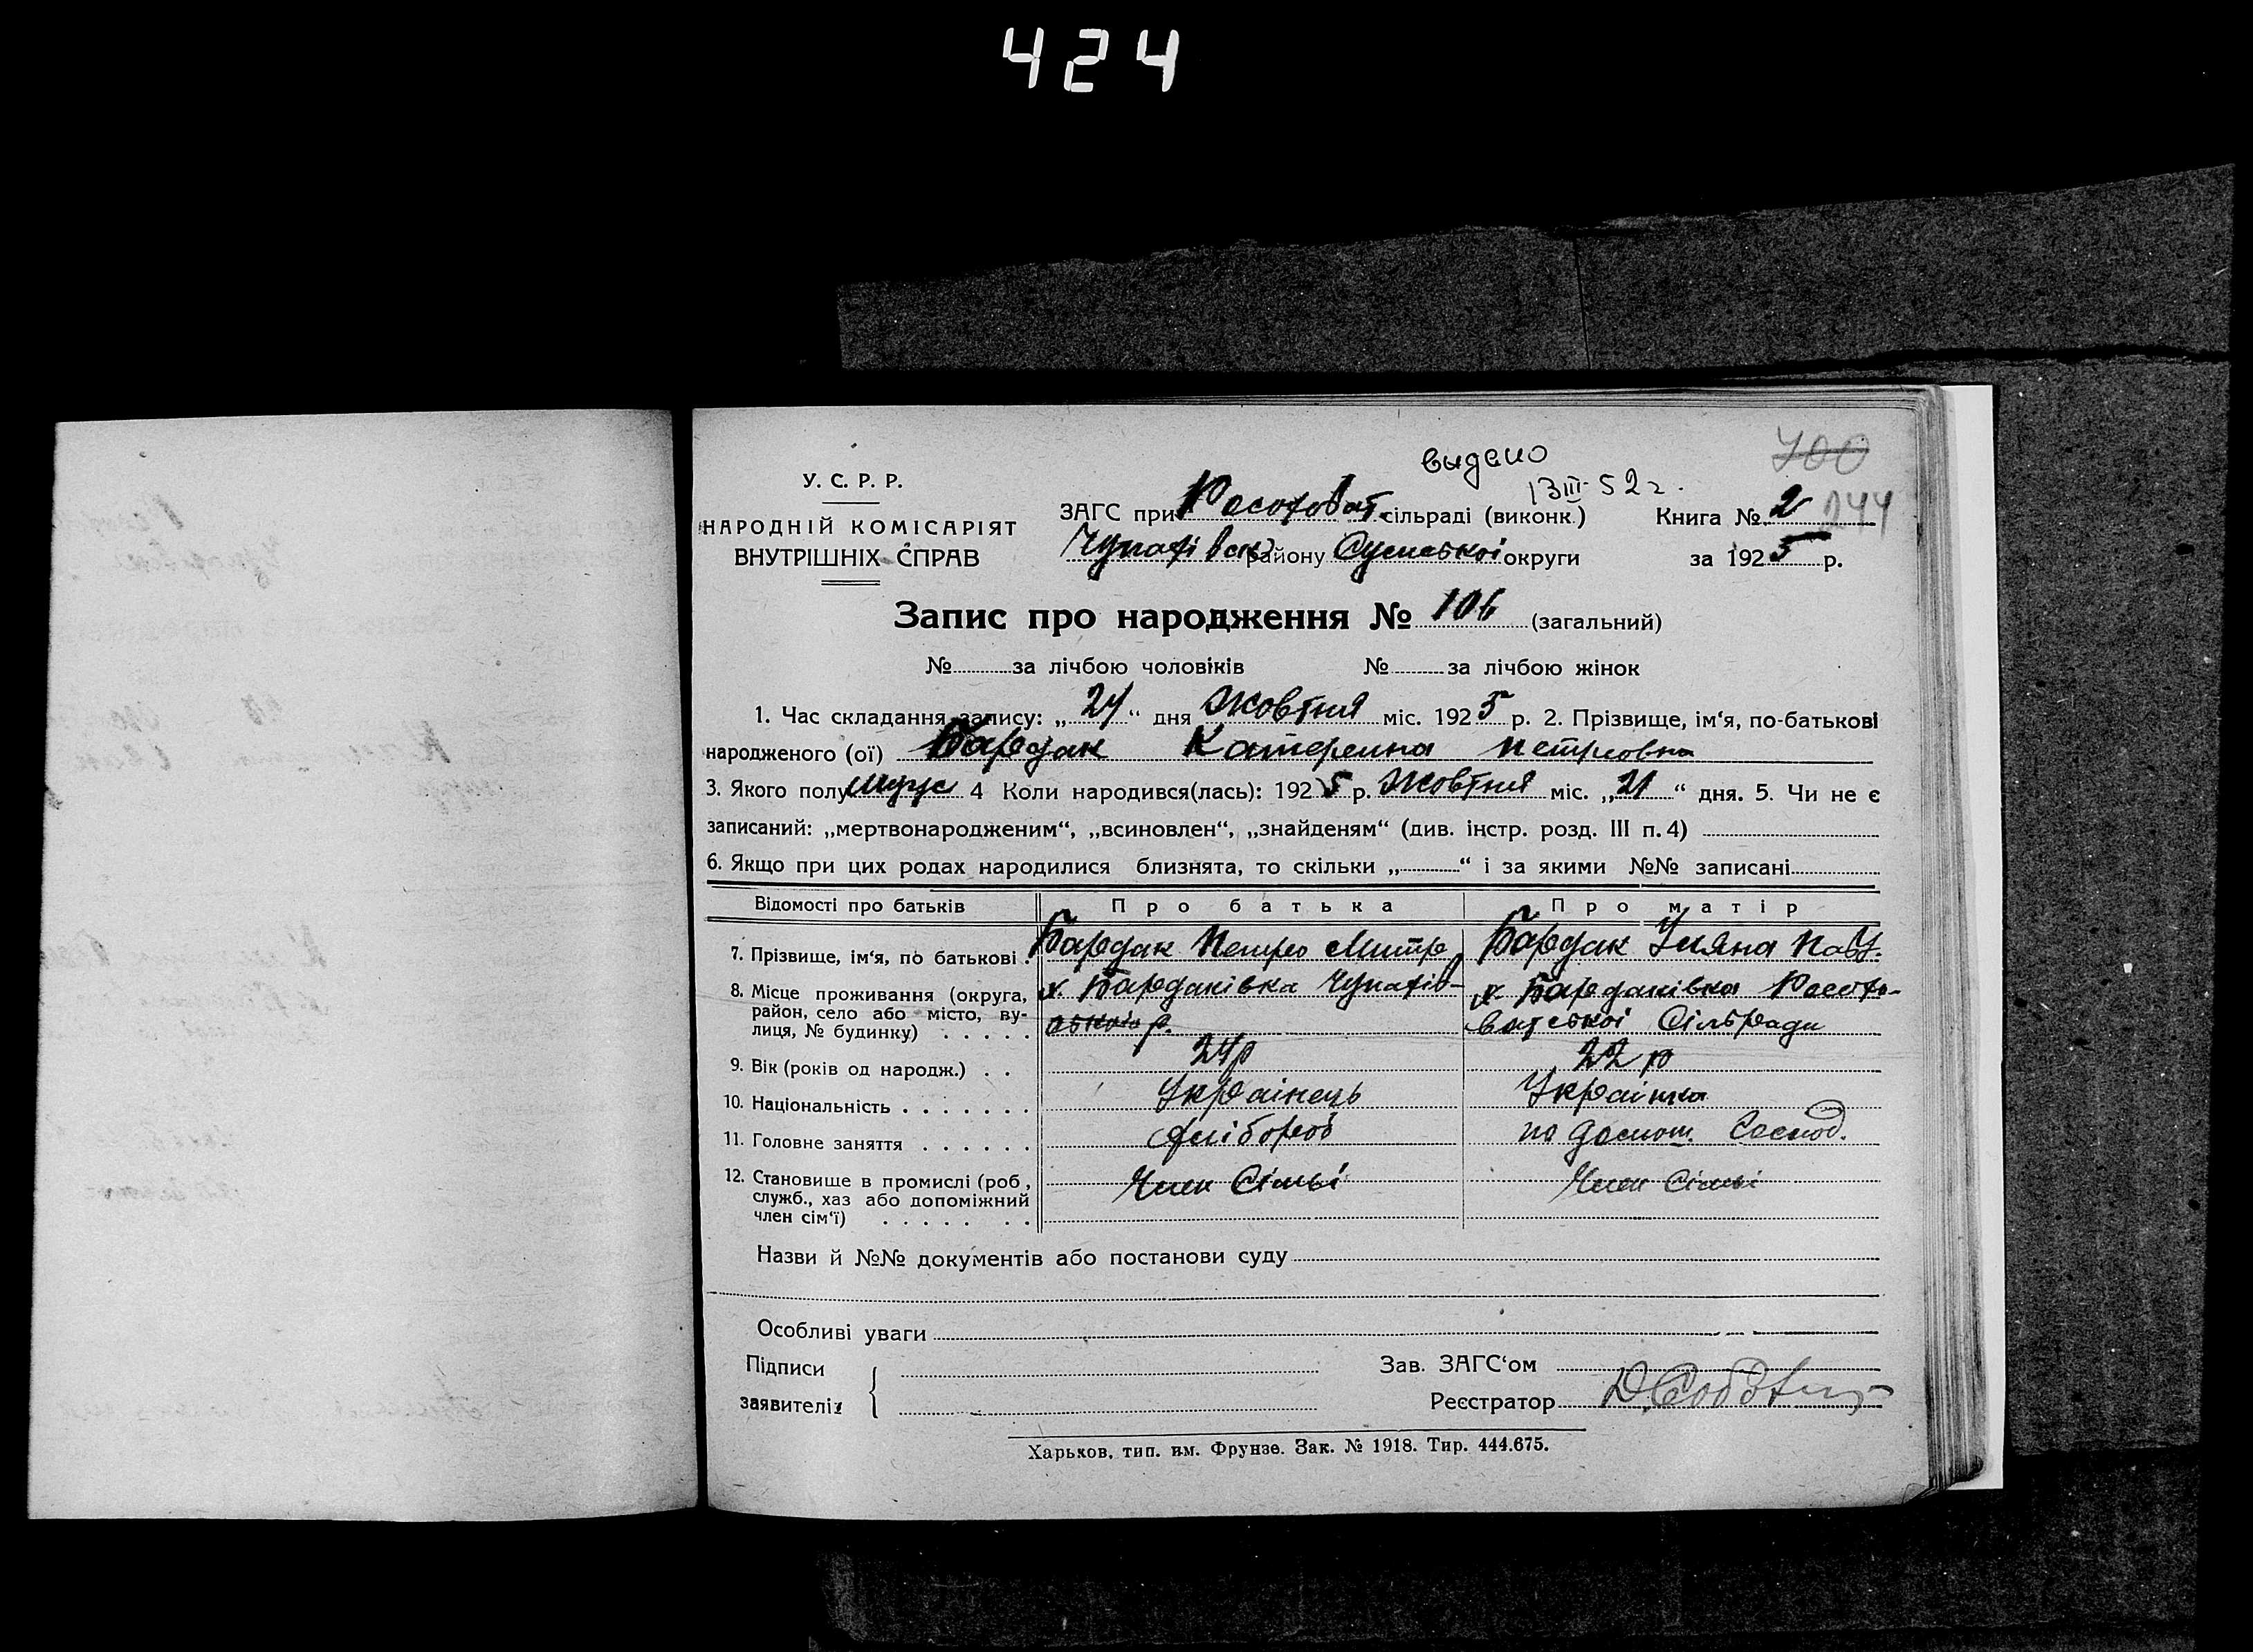 424
У. С. Р. Р.
НАРОДНІЙ КОМІСАРІЯТ
ВНУТРІШНІХ СПРАВ
видано
13 III 52 г.
700
244
ЗАГС при Росоховат. сільраді (виконк.) Книга № 2
Чупахівськ району Сумської округи за 1925 р.
Запис про народження № 106 (загальний)
№ за лічбою чоловіків № за лічбою жінок
1. Час складання запису: „24“ дня Жовтня міс. 1925 р. 2. Прізвище, ім‘я, по-батькові
народженого (ої) Бардак Катерина Петровна
3. Якого полу 4 Коли народився(лась): 1925 р. Жовтня міс. „21“ дня. 5. Чи не є
записаний: „мертвонародженим“, „всиновлен“, „знайденям“ (див. інстр. розд. III п. 4)
6. Якщо при цих родах народилися близнята, то скільки „ “ і за якими №№ записані
Відомості про батьків Про батька Про матір
7. Прізвище, ім‘я, по батькові . Бардак Петро Митр. Бардак Уляна Пав.
8. Місце проживання (округа, район, село або місто, вулиця, № будинку) . . . . . х. Бардаківка Чупахів-
ського р.
х. Бардаківка Росохо-
ватської Сільради
9. Вік (років од народж.) . . 24 р 22 р
10. Національність . . . . . . . Українець Українка
11. Головне заняття . . . . . . Хлібороб по домош. Господ.
12. Становище в промислі (роб, служб., хаз або допоміжний член сім‘ї) . . . . . . . Член Сімьї Член Сімьї
Назви й №№ документів або постанови суду
Особливі уваги
Підписи
заявителів
Зав. ЗАГС‘ом
Реєстратор
Харьков, тип. им. Фрунзе. Зак. № 1918. Тир. 444.675.